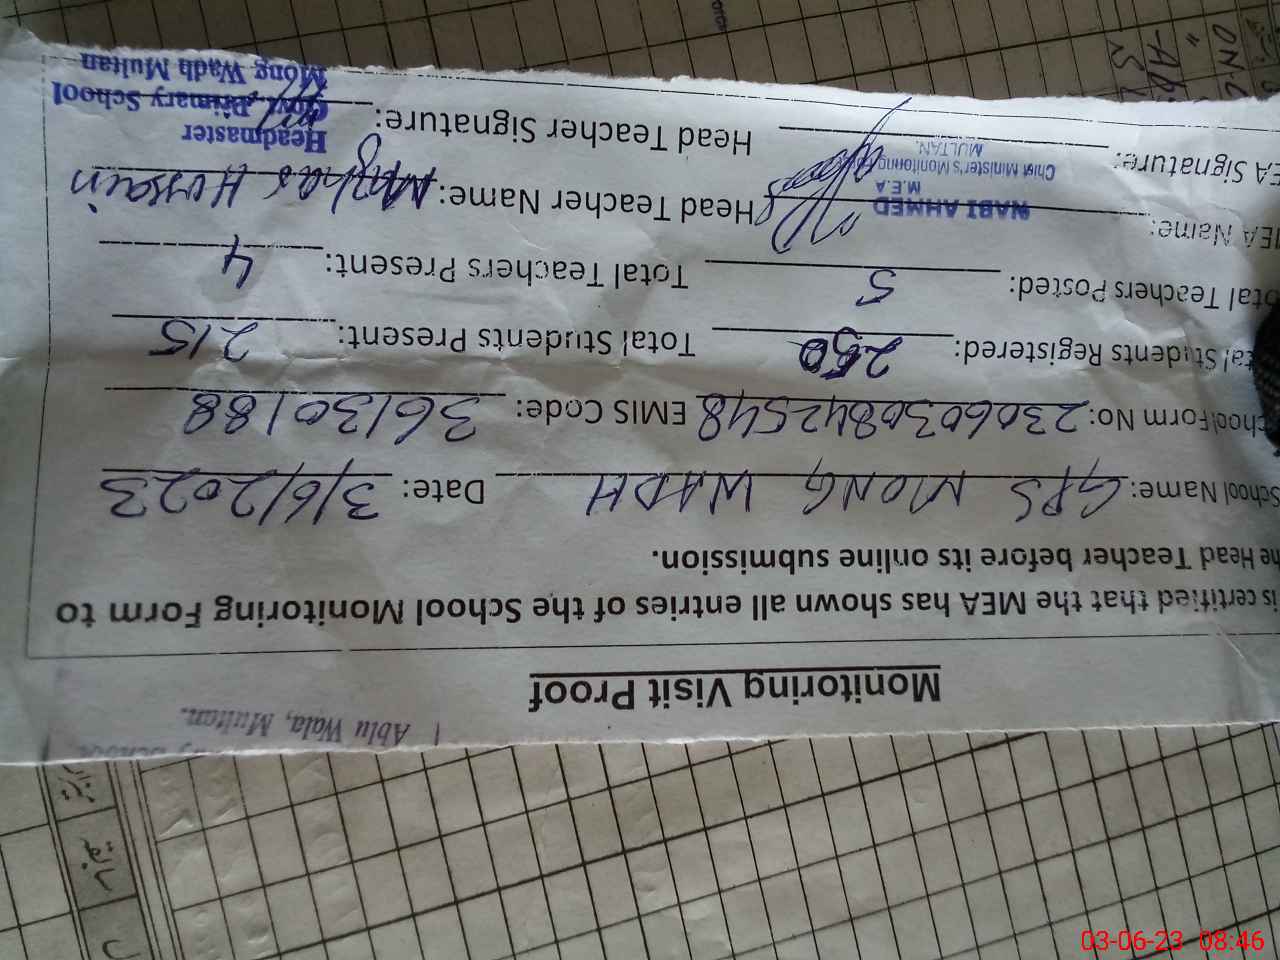 Ablu Wala, Multan.
Monitoring Visit Proof
is certified that the MEA has shown all entries of the School Monitoring Form to
Head Teacher before its online submission.
School Name: GPS MONG WADH Date: 3/6/2023
School Form No: 2306030842548 EMIS Code: 36130188
Students Registered: 250 Total Students Present: 215
Total Teachers Posted: 5 Total Teachers Present: 4
MEA Name: NABI AHMED Head Teacher Name: Hussain
M.E.A
Chief Minister's Monitoring Force
MULTAN.
EA Signature: Head Teacher Signature:
Headmaster
Govt. Primary School
Mong Wadh Multan
03-06-23 08:46